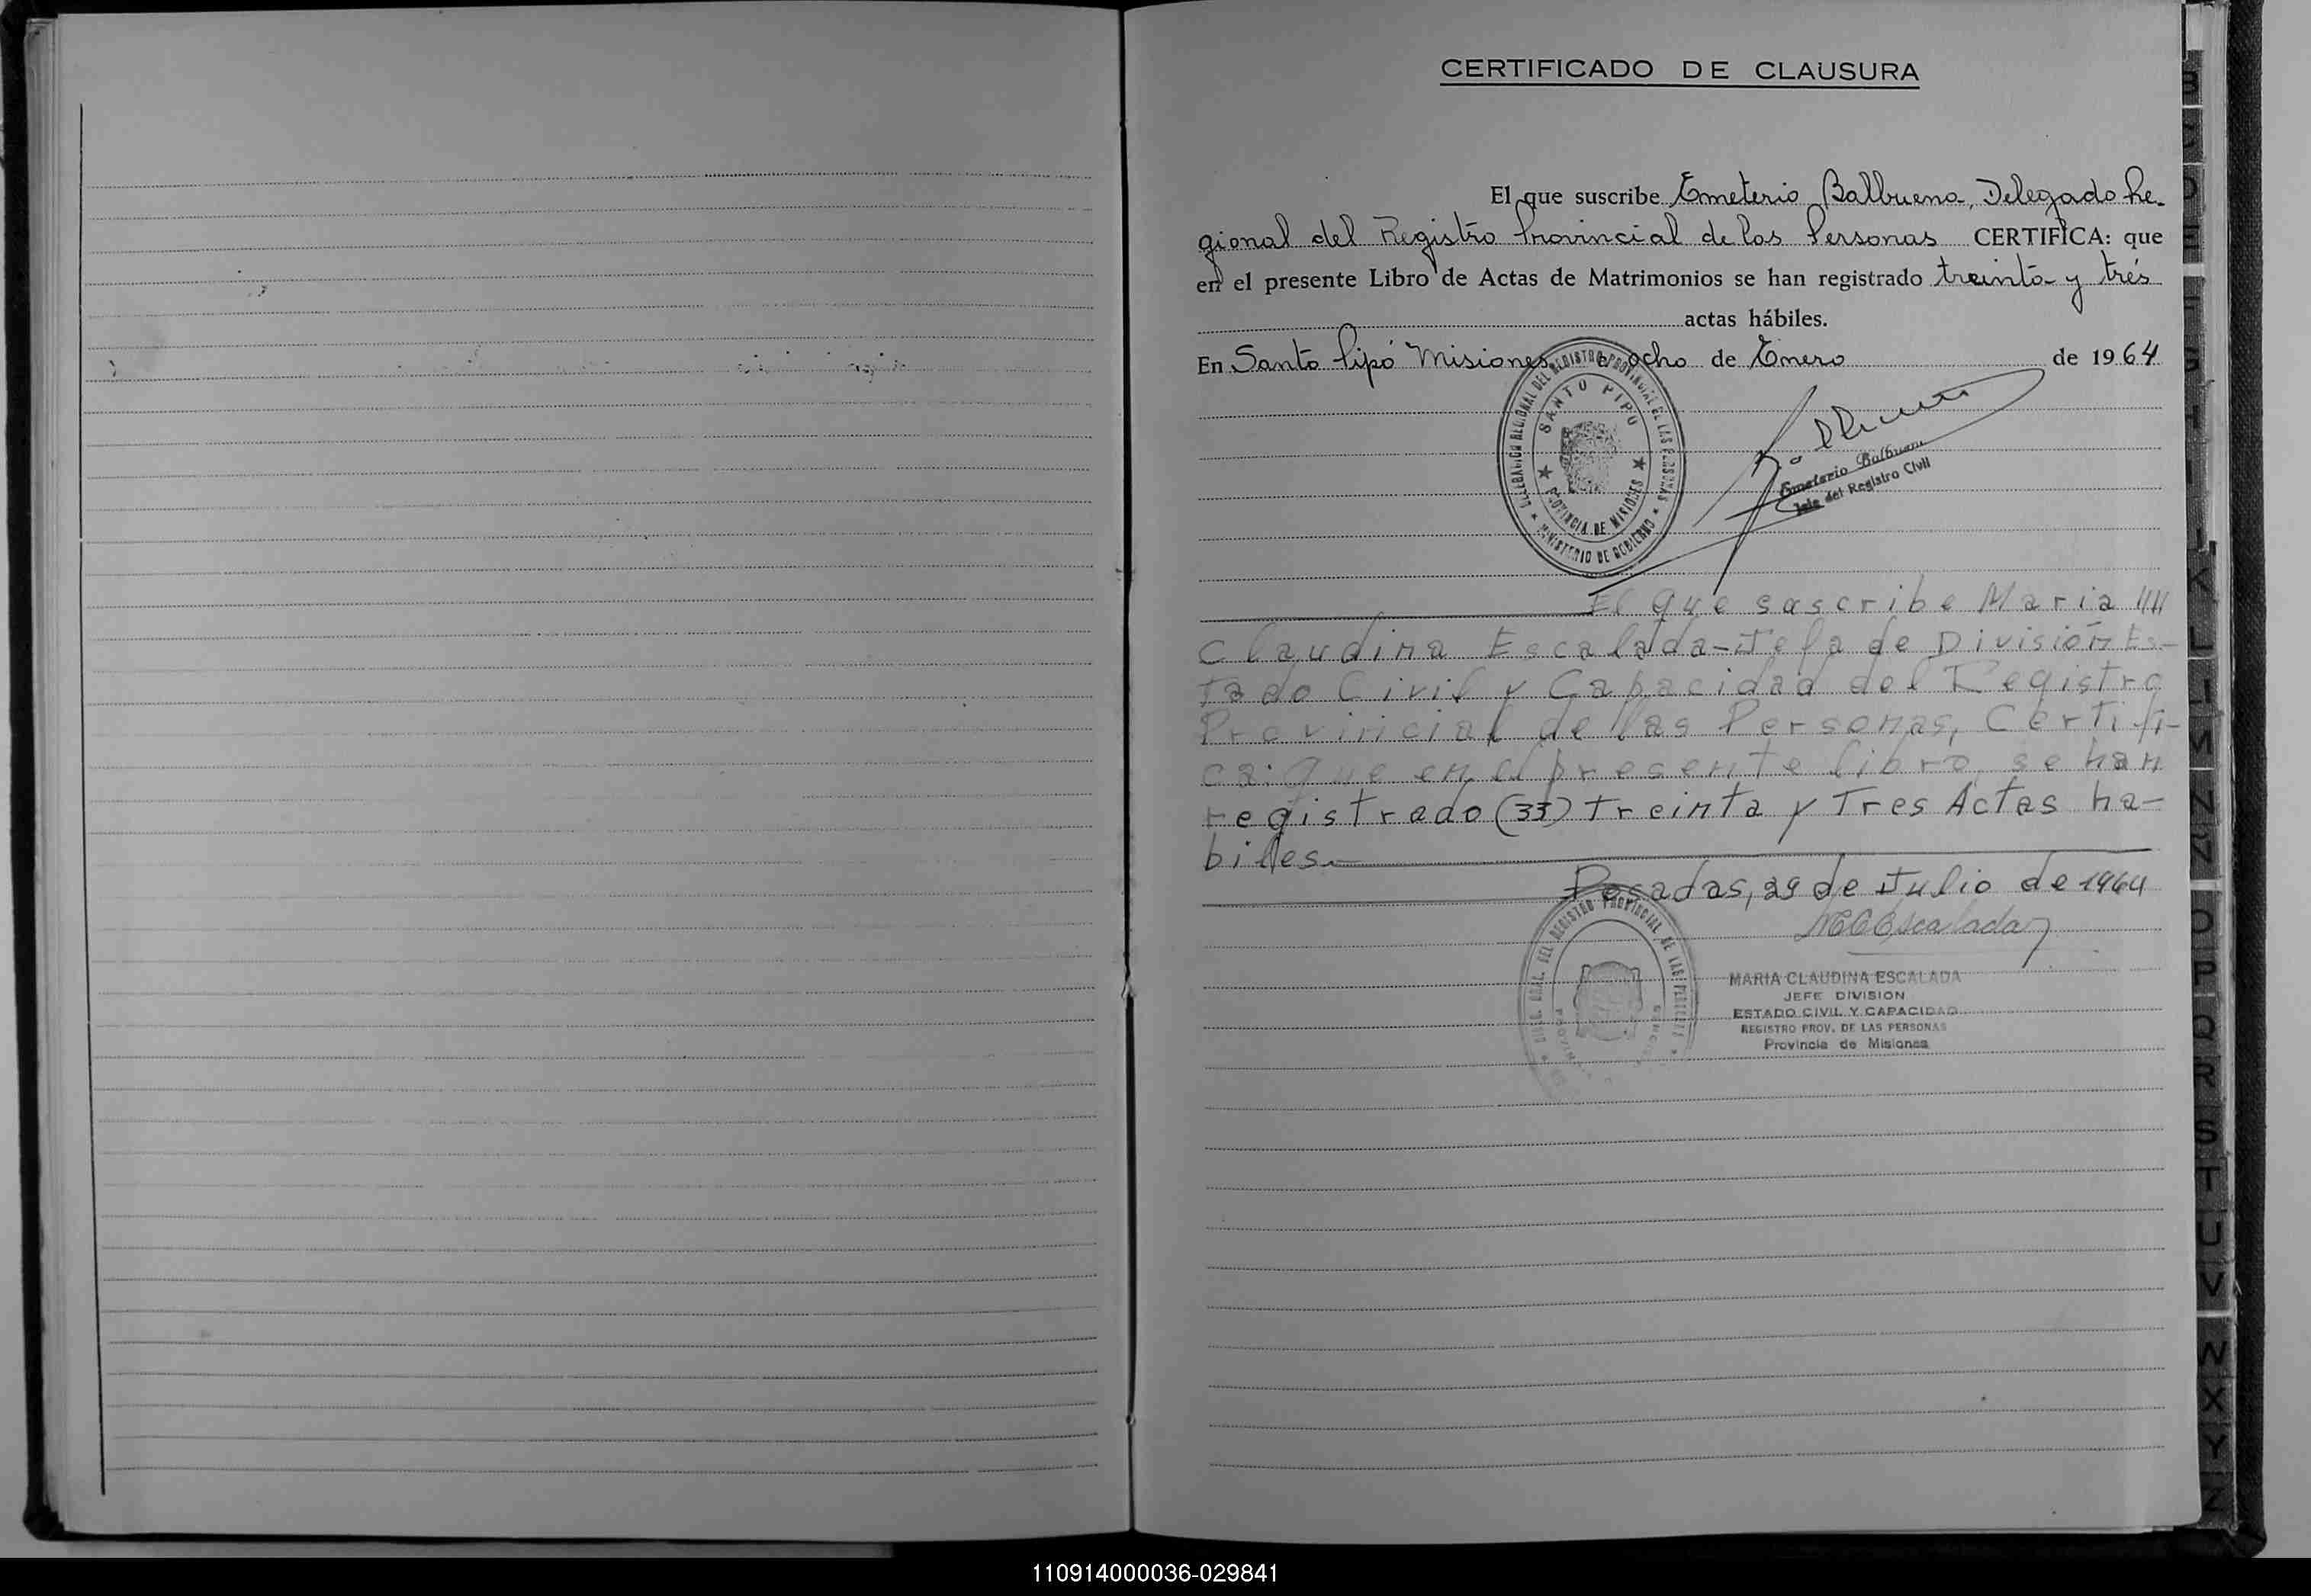 CERTIFICADO DE CLAUSURA
El que suscribe Emeterio Balbuena, Delegado Re-
gional del Registro Provincial de las Personas CERTIFICA: que
en el presente Libro de Actas de Matrimonios se han registrado treinta y trés
actas hábiles.
En Santo Pipó Misiones a ocho de Enero de 1964
DELEGACION REGIONAL DEL REGISTRO PROVINCIAL DE LAS PERSONAS
SANTO PIPO
PROVINCIA DE MISIONES
MINISTERIO DE GOBIERNO
Emeterio Balbuena
Jefe del Registro Civil
El que suscribe Maria
Claudina Escalada-Jefa de División Es-
tado Civil y Capacidad del Registro
Provincial de las Personas, Certifi-
ca: Que en el presente libro, se han
registrado (33) Treinta y Tres Actas ha-
biles.
Posadas, 29 de Julio de 1964
MCEscalada
DIREC. GRAL. DEL REGISTRO PROVINCIAL DE LAS PERSONAS
MARIA CLAUDINA ESCALADA
JEFE DIVISION
ESTADO CIVIL Y CAPACIDAD
REGISTRO PROV. DE LAS PERSONAS
Provincia de Misiones
B
C
D
E
F
G
H
I
J
K
L
LL
M
N
Ñ
O
P
Q
R
S
T
U
V
W
X
Y
Z
110914000036-029841